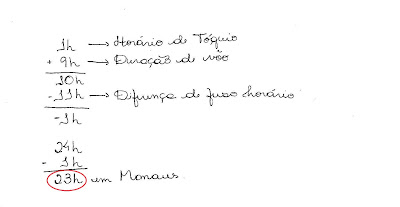 1h → Horário de Tóquio
+ 9h → Duração de vôo
10h
- 11h → Difrença de fuso horário
- 1h
24h
- 1h
23h em Manaus.